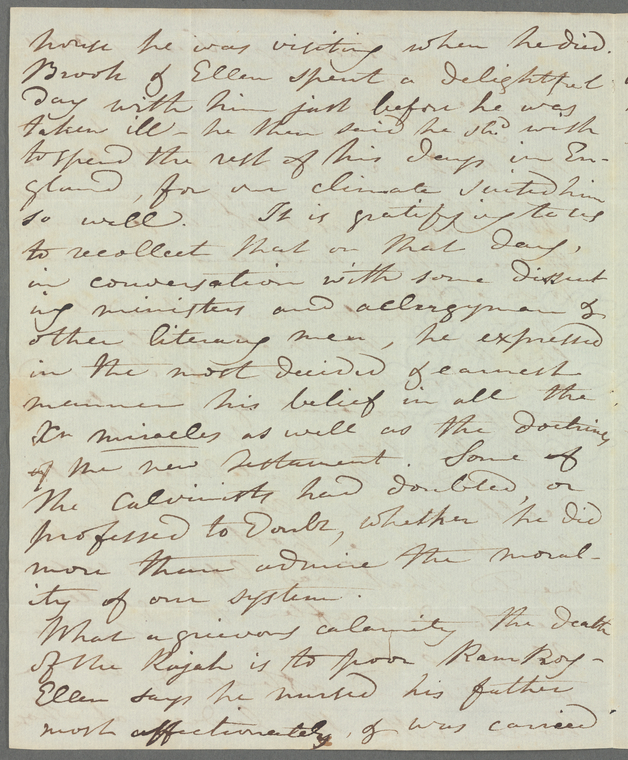 house he was visiting when he died.
Brook & Ellen spent a delightful
day with him just before he was
taken ill – he then said he shd wish
to spend the rest of his days in En-
gland, for our climate suited him
so well. It is gratifying to us
to recollect that on that day,
in conversation with some dissent
ing ministers and a clergyman &
other literary men, he expressed
in the most decided & earnest
manner his belief in all the
Xn miracles as well as the doctrines
of the new testament. Some of
the Calvinists had doubted, or
professed to doubt, whether he did
more than admire the moral-
ity of our system.
What a grievous calamity the death
of the Rajah is to poor Ram Roy –
Ellen says he nursed his father
most affectionately, & was carried